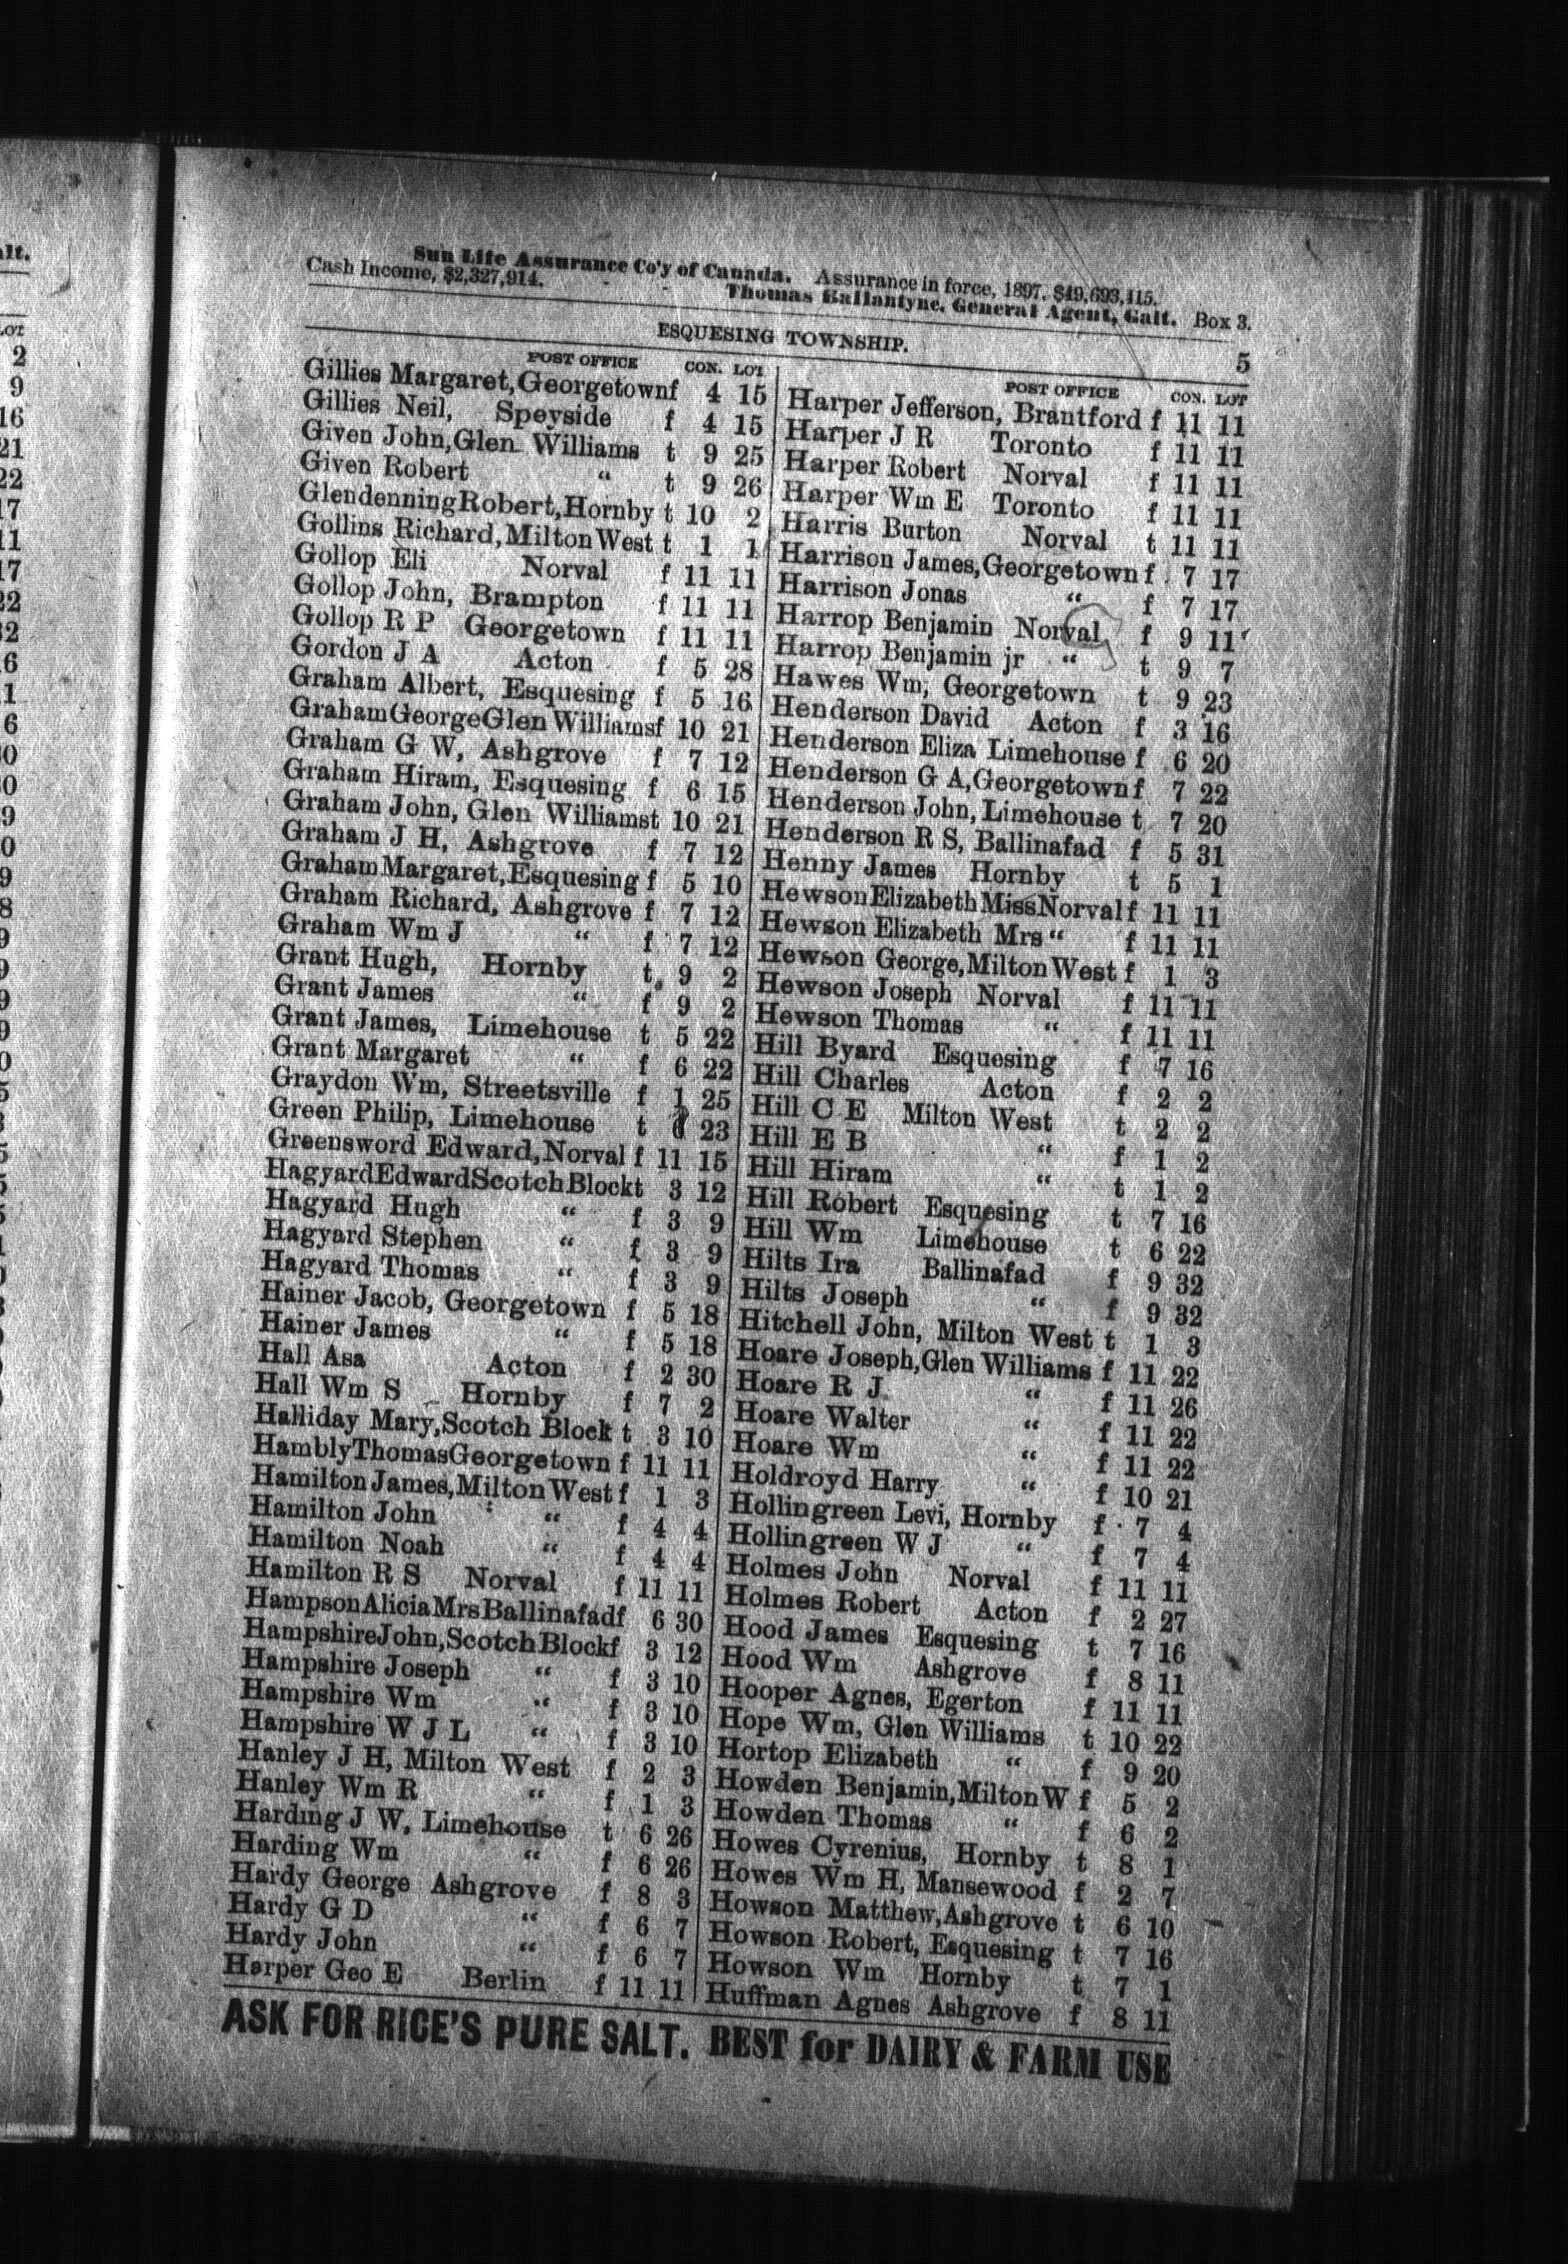 Sun Life Assurance Co'y of Canada. Assurance in force, 1897, $49,693,415.
Cash Income, $2,327,914. Thomas Ballantyne, General Agent, Galt. Box 3.
ESQUESING TOWNSHIP. 5
POST OFFICE CON. LOT
Gillies Margaret, Georgetown f 4 15
Gillies Neil, Speyside f 4 15
Given John, Glen Williams t 9 25
Given Robert “ t 9 26
Glendenning Robert, Hornby t 10 2
Gollins Richard, Milton West t 1 1
Gollop Eli Norval f 11 11
Gollop John, Brampton f 11 11
Gollop R P Georgetown f 11 11
Gordon J A Acton f 5 28
Graham Albert, Esquesing f 5 16
Graham George Glen Williams f 10 21
Graham G W, Ashgrove f 7 12
Graham Hiram, Esquesing f 6 15
Graham John, Glen Williams t 10 21
Graham J H, Ashgrove f 7 12
Graham Margaret, Esquesing f 5 10
Graham Richard, Ashgrove f 7 12
Graham Wm J “ f 7 12
Grant Hugh, Hornby t 9 2
Grant James “ f 9 2
Grant James, Limehouse t 5 22
Grant Margaret “ f 6 22
Graydon Wm, Streetsville f 1 25
Green Philip, Limehouse t 6 23
Greensword Edward, Norval f 11 15
Hagyard Edward Scotch Block t 3 12
Hagyard Hugh “ f 3 9
Hagyard Stephen “ f 3 9
Hagyard Thomas “ f 3 9
Hainer Jacob, Georgetown f 5 18
Hainer James “ f 5 18
Hall Asa Acton f 2 30
Hall Wm S Hornby f 7 2
Halliday Mary, Scotch Block t 3 10
Hambly Thomas Georgetown f 11 11
Hamilton James, Milton West f 1 3
Hamilton John “ f 4 4
Hamilton Noah “ f 4 4
Hamilton R S Norval f 11 11
Hampson Alicia Mrs Ballinafad f 6 30
Hampshire John, Scotch Block f 3 12
Hampshire Joseph “ f 3 10
Hampshire Wm “ f 3 10
Hampshire W J L “ f 3 10
Hanley J H, Milton West f 2 3
Hanley Wm R “ f 1 3
Harding J W, Limehouse t 6 26
Harding Wm “ f 6 26
Hardy George Ashgrove f 8 3
Hardy G D “ f 6 7
Hardy John “ f 6 7
Harper Geo E Berlin f 11 11
POST OFFICE CON. LOT
Harper Jefferson, Brantford f 11 11
Harper J R Toronto f 11 11
Harper Robert Norval f 11 11
Harper Wm E Toronto f 11 11
Harris Burton Norval t 11 11
Harrison James, Georgetown f 7 17
Harrison Jonas “ f 7 17
Harrop Benjamin Norval f 9 11
Harrop Benjamin jr “ t 9 7
Hawes Wm, Georgetown t 9 23
Henderson David Acton f 3 16
Henderson Eliza Limehouse f 6 20
Henderson G A, Georgetown f 7 22
Henderson John, Limehouse t 7 20
Henderson R S, Ballinafad f 5 31
Henny James Hornby t 5 1
Hewson Elizabeth Miss Norval f 11 11
Hewson Elizabeth Mrs “ f 11 11
Hewson George, Milton West f 1 3
Hewson Joseph Norval f 11 11
Hewson Thomas “ f 11 11
Hill Byard Esquesing f 7 16
Hill Charles Acton f 2 2
Hill C E Milton West t 2 2
Hill E B “ f 1 2
Hill Hiram “ t 1 2
Hill Robert Esquesing t 7 16
Hill Wm Limehouse t 6 22
Hilts Ira Ballinafad f 9 32
Hilts Joseph “ f 9 32
Hitchell John, Milton West t 1 3
Hoare Joseph, Glen Williams f 11 22
Hoare R J “ f 11 26
Hoare Walter “ f 11 22
Hoare Wm “ f 11 22
Holdroyd Harry “ f 10 21
Hollingreen Levi, Hornby f 7 4
Hollingreen W J “ f 7 4
Holmes John Norval f 11 11
Holmes Robert Acton f 2 27
Hood James Esquesing t 7 16
Hood Wm Ashgrove f 8 11
Hooper Agnes, Egerton f 11 11
Hope Wm, Glen Williams t 10 22
Hortop Elizabeth “ f 9 20
Howden Benjamin, Milton W f 5 2
Howden Thomas “ f 6 2
Howes Cyrenius, Hornby t 8 1
Howes Wm H, Mansewood f 2 7
Howson Matthew, Ashgrove t 6 10
Howson Robert, Esquesing t 7 16
Howson Wm Hornby t 7 1
Huffman Agnes Ashgrove f 8 11
ASK FOR RICE'S PURE SALT. BEST for DAIRY & FARM USE